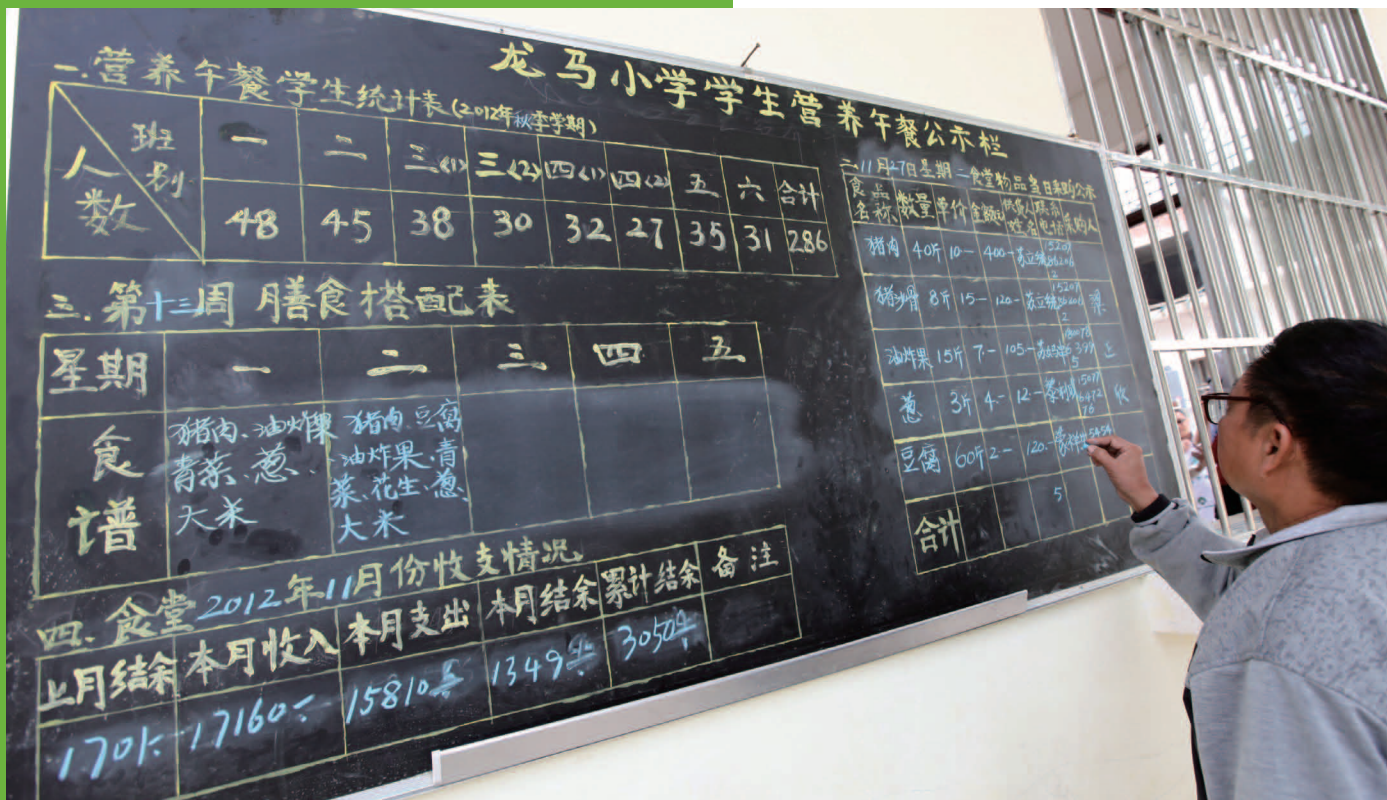 龙马小学学生营养午餐公示栏
一.营养午餐学生统计表(2012年秋季学期)
班别 人数 一 二 三(1) 三(2) 四(1) 四(2) 五 六 合计
48 45 38 30 32 27 35 31 286
二.11月27日星期二食堂物品当日采购公示
食品名称 数量 单价 金额 供货人姓名 联系电话 采购人
猪肉 40斤 10— 400— 苏立
猪骨 8斤 15— 120— 苏立
油炸果 15斤 7— 105—
葱 3斤 4— 12—
豆腐 60斤 2— 120—
合计
三.第十三周膳食搭配表
星期 一 二 三 四 五
食谱
猪肉、油炸果
青菜、葱、
大米
猪肉、豆腐
油炸果、青
菜、花生、葱
大米
四.食堂2012年11月份收支情况
上月结余 本月收入 本月支出 本月结余 累计结余 备注
1701 17160 15810 1349 3050